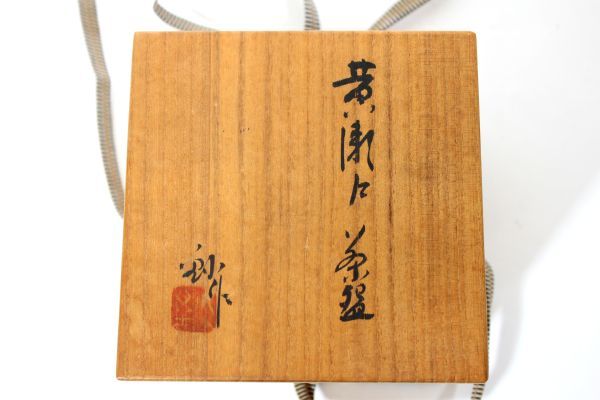 黄瀬戸 茶盌
作